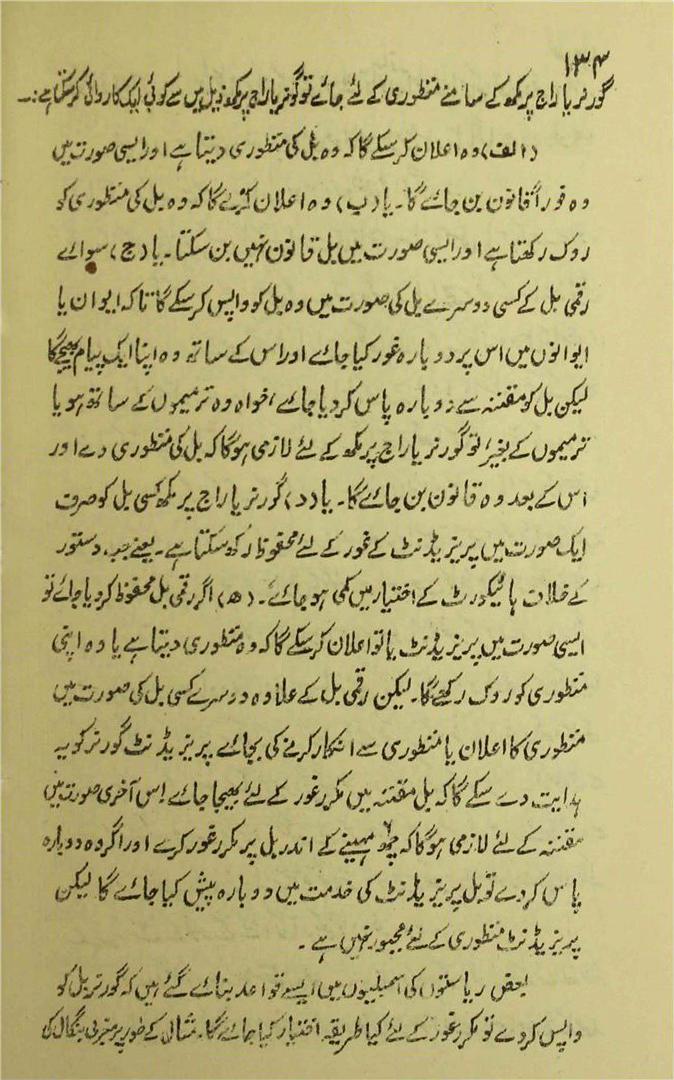 ۱۳۴
گورنر یا راج پرمکھ کے سامنے منظوری کے لئے جائے تو گورنر یا راج پرمکھ ذیل میں سے کوئی ایک کاروائی کرسکتا ہے:۔
(الف) وہ اعلان کرسکے گا کہ وہ بل کی منظوری دیتا ہے اور ایسی صورت میں
وہ فوراً قانون بن جائے گا۔ یا (ب) وہ اعلان کرے گا کہ وہ بل کی منظوری کو
روک رکھتا ہے اور ایسی صورت میں بل قانون نہیں بن سکتا۔ یا (ج) سوائے
رقمی بل کے کسی دوسرے بل کی صورت میں وہ بل کو واپس کرسکے گا تاکہ ایوان یا
ایوانوں میں اس پر دوبارہ غور کیا جائے اور اس کے ساتھ وہ اپنا ایک پیام بھیجے گا
لیکن بل کو مقننہ سے دوبارہ پاس کردیا جائے، خواہ وہ ترمیموں کے ساتھ ہو یا
ترمیموں کے بغیر، تو گورنر یا راج پرمکھ کے لئے لازمی ہوگا کہ بل کی منظوری دے اور
اس کے بعد وہ قانون بن جائے گا۔ یا (د) گورنر یا راج پرمکھ کسی بل کو صرف
ایک صورت میں پریزیڈنٹ کے غور کے لئے محفوظ رکھ سکتا ہے۔ یعنے جب دستور
کے خلاف ہائیکورٹ کے اختیار میں کمی ہو جائے۔ (ھ) اگر رقمی بل محفوظ کردیا جائے تو
ایسی صورت میں پریزیڈنٹ یا تو اعلان کرسکے گا کہ وہ منظوری دیتا ہے یا وہ اپنی
منظوری کو روک رکھے گا۔ لیکن رقمی بل کے علاوہ دوسرے کسی بل کی صورت میں
منظوری کا اعلان یا منظوری سے انکار کرنے کی بجائے پریزیڈنٹ گورنر کو یہ
ہدایت دے سکے گا کہ بل مقننہ میں مکرر غور کے لئے بھیجا جائے اس آخری صورت میں
مقننہ کے لئے لازمی ہوگا کہ چھ مہینے کے اندر بل پر مکرر غور کرے اور اگر وہ دوبارہ
پاس کردے تو بل پریزیڈنٹ کی خدمت میں دوبارہ پیش کیا جائے گا لیکن
پریزیڈنٹ منظوری کے لئے مجبور نہیں ہے۔
بعض ریاستوں کی اسمبلیوں میں ایسے قواعد بنائے گئے ہیں کہ گورنر بل کو
واپس کردے تو مکرر غور کے لئے کیا طریقہ اختیار کیا جائے گا۔ مثال کے طور پر مغربی بنگال کی